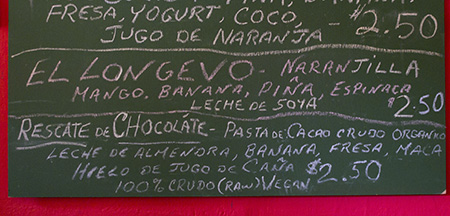 FRESA, YOGURT, COCO, $2.50
JUGO DE NARANJA
EL LONGEVO - NARANJILLA
MANGO, BANANA, PIÑA, ESPINACA
LECHE DE SOYA $2.50
RESCATE DE CHOCOLATE - PASTA DE CACAO CRUDO ORGANICO
LECHE DE ALMENDRA, BANANA, FRESA, MACA
HIELO DE JUGO DE CAÑA $2.50
100% CRUDO (RAW) VEGAN